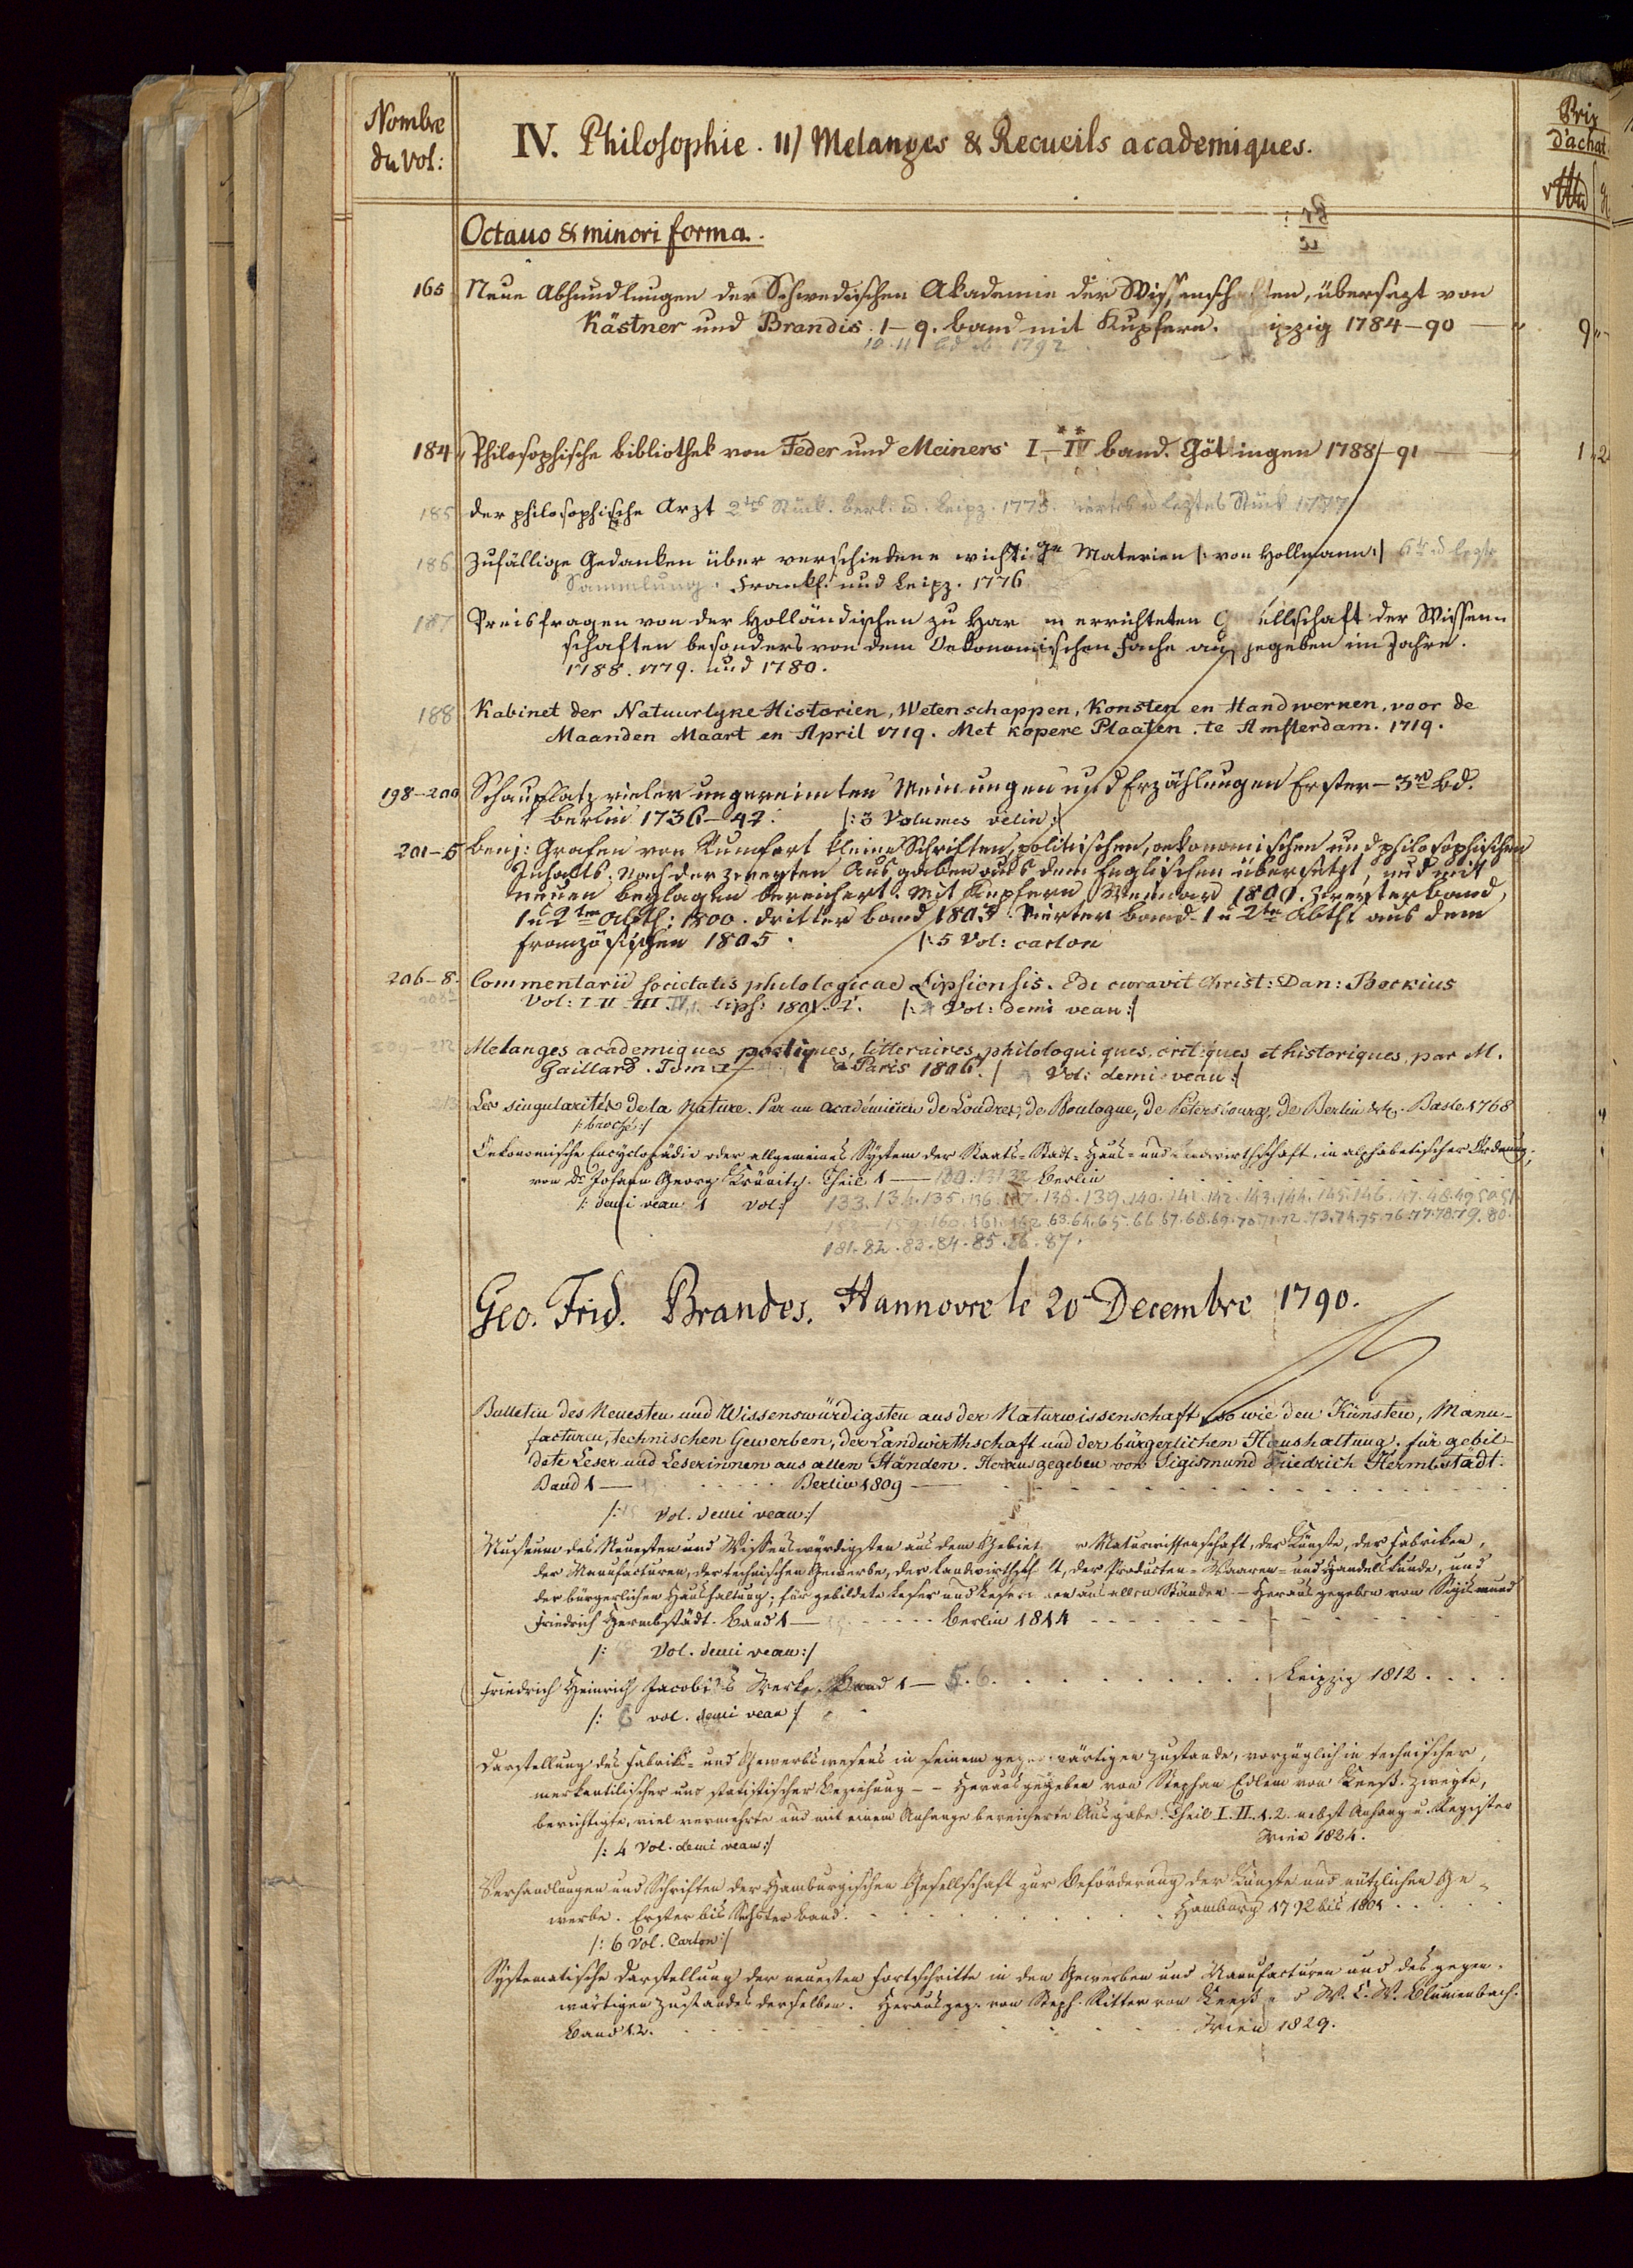 Nombre
du Vol:
IV. Philosophie. 11) Melanges & Recueils academiques.
Prix
d'achat
Octauo & minori forma.
165 Neue Abhandlungen der Schwedischen Akademie der Wissenschaften, übersezt von
Kästner und Brandis. 1-9. band mit Kupfern. ipzig 1784-90 — 9
10. 11 1792
184 Philosophische bibliothek von Feder und Meiners I-IV band. Göttingen 1788-91 — 1 2
185 der philosophische Arzt 2tes Stück. berl. u. Leipz. 1775. viertes u leztes Stück 1777
186 Zufällige Gedanken über verschiedene wichtige Materien /: von Hollmann :/ 6te u
Sammlung. Frankf. und Leipz. 1776
187 Preisfragen von der Holländischen zu Har m errichteten G ellschaft der Wissen=
schaften besonders von dem Oekonomischen Fache aus gegeben im Jahre.
1788. 1779. und 1780.
188 Kabinet der Natuurlyke Historien, Wetenschappen, Konsten en Handwerken, voor de
Maanden Maart en April 1719. Met kopere Plaaten. te Amsterdam. 1719.
198-200 Schauplatz vieler ungereimten Meinungen und Erzählungen Erster — 3r bd.
berlin 1736-42. /: 3 Volumes velin :/
201-5 benj: Grafen von Rumfort kleine Schriften, politischen, oekonomischen und philosophischen
Inhalts. Nach der zweyten Ausgabe aus dem Englischen übersetzt, und mit
neuen beylagen bereichert. Mit Kupfern Weimar 1800. Zweyter band,
1 u 2te Abth: 1800. dritter band 1803. Vierter band 1 u 2te Abth: aus dem
französischen 1805. /: 5 Vol: carton
206-8. Commentarii societatis philologicae Lipsiensis. Edi curavit Christ: Dan: Beckius
Vol: I II III IV, Lips: 1801. /: Vol: demi veau :/
509-212 Melanges academiques poetiques, litteraires, philologuiques, critiques et historiques par M.
Gaillard. Tom I — a Paris 1806. /: Vol: demi veau :/
213 Les singularités de la Nature. Par un académicien de Londres, de Boulogne, de Pétersbourg, de Berlin &c. Basle 1768
/: broché :/
Oekonomische Encyclopädie oder allgemeines System der Staats= Stadt= Haus= und Landwirthschaft, in alphabetischer Ordnung;
von Dr Johann Georg Krünitz. Theil 1 — 130. 131 32 Berlin
/: demi veau 1 vol :/ 133. 134. 135. 136. 137. 138. 139. 140. 141. 142. 143. 144. 145. 146. 47. 48. 49 50 51
152 — 159. 160. 161. 162 63. 64. 65. 66 67. 68. 69. 70. 71. 72. 73. 74. 75. 76. 77. 78. 79. 80.
181. 82. 83. 84. 85. 86. 87.
Geo. Frid. Brandes. Hannovre le 20 Decembre 1790.
Bulletin des Neuesten und Wissenswürdigsten aus der Naturwissenschaft, so wie den Künsten, Manu-
facturen, technischen Gewerben, der Landwirthschaft und der bürgerlichen Haushaltung. für gebil-
dete Leser und Leserinnen aus allen Ständen. Herausgegeben von Sigismund Friedrich Hermbstädt.
Band 1 — Berlin 1809 —
/: Vol. demi veau :/
Museum des Neuesten und Wissenswürdigsten aus dem Gebiet r Naturwissenschaft, der Künste, der Fabriken,
der Manufacturen, der technischen Gewerbe, der Landwirthsch t, der Producten= Waaren= und Handelskunde, und
der bürgerlichen Haushaltung; für gebildete Leser und Leser nen aus allen Ständen — Herausgegeben von Sigismund
Friedrich Hermbstädt. Band 1 — Berlin 1814
/: Vol. demi veau :/
Friedrich Heinrich Jacobi's Werke. Band 1 — 5. 6. Leipzig 1812.
/: 6 vol. demi veau :/
Darstellung des Fabriks= und Gewerbswesens in seinem gegenwärtigen Zustande, vorzüglich in technischer,
merkantilischer und statistischer Beziehung — Herausgegeben von Stephan Edlem von Keeß. Zweyte,
berichtigte, viel vermehrte und mit einem Anhange bereicherte Ausgabe. Theil I. II. 1. 2. nebst Anhang u. Register
Wien 1824.
/: 4 Vol. demi veau :/
Verhandlungen und Schriften der Hamburgischen Gesellschaft zur Beförderung der Künste und nützlichen Ge=
werbe. Erster bis Sechster Band. Hamburg 1792 bis 1801
/: 6 Vol. Carton :/
Systematische Darstellung der neuesten Fortschritte in den Gewerben und Manufacturen und des gegen=
wärtigen Zustandes derselben. Herausgeg. von Steph. Ritter von Keeß u W. C. W. Blumenbach.
Band 1. 2. Wien 1829.